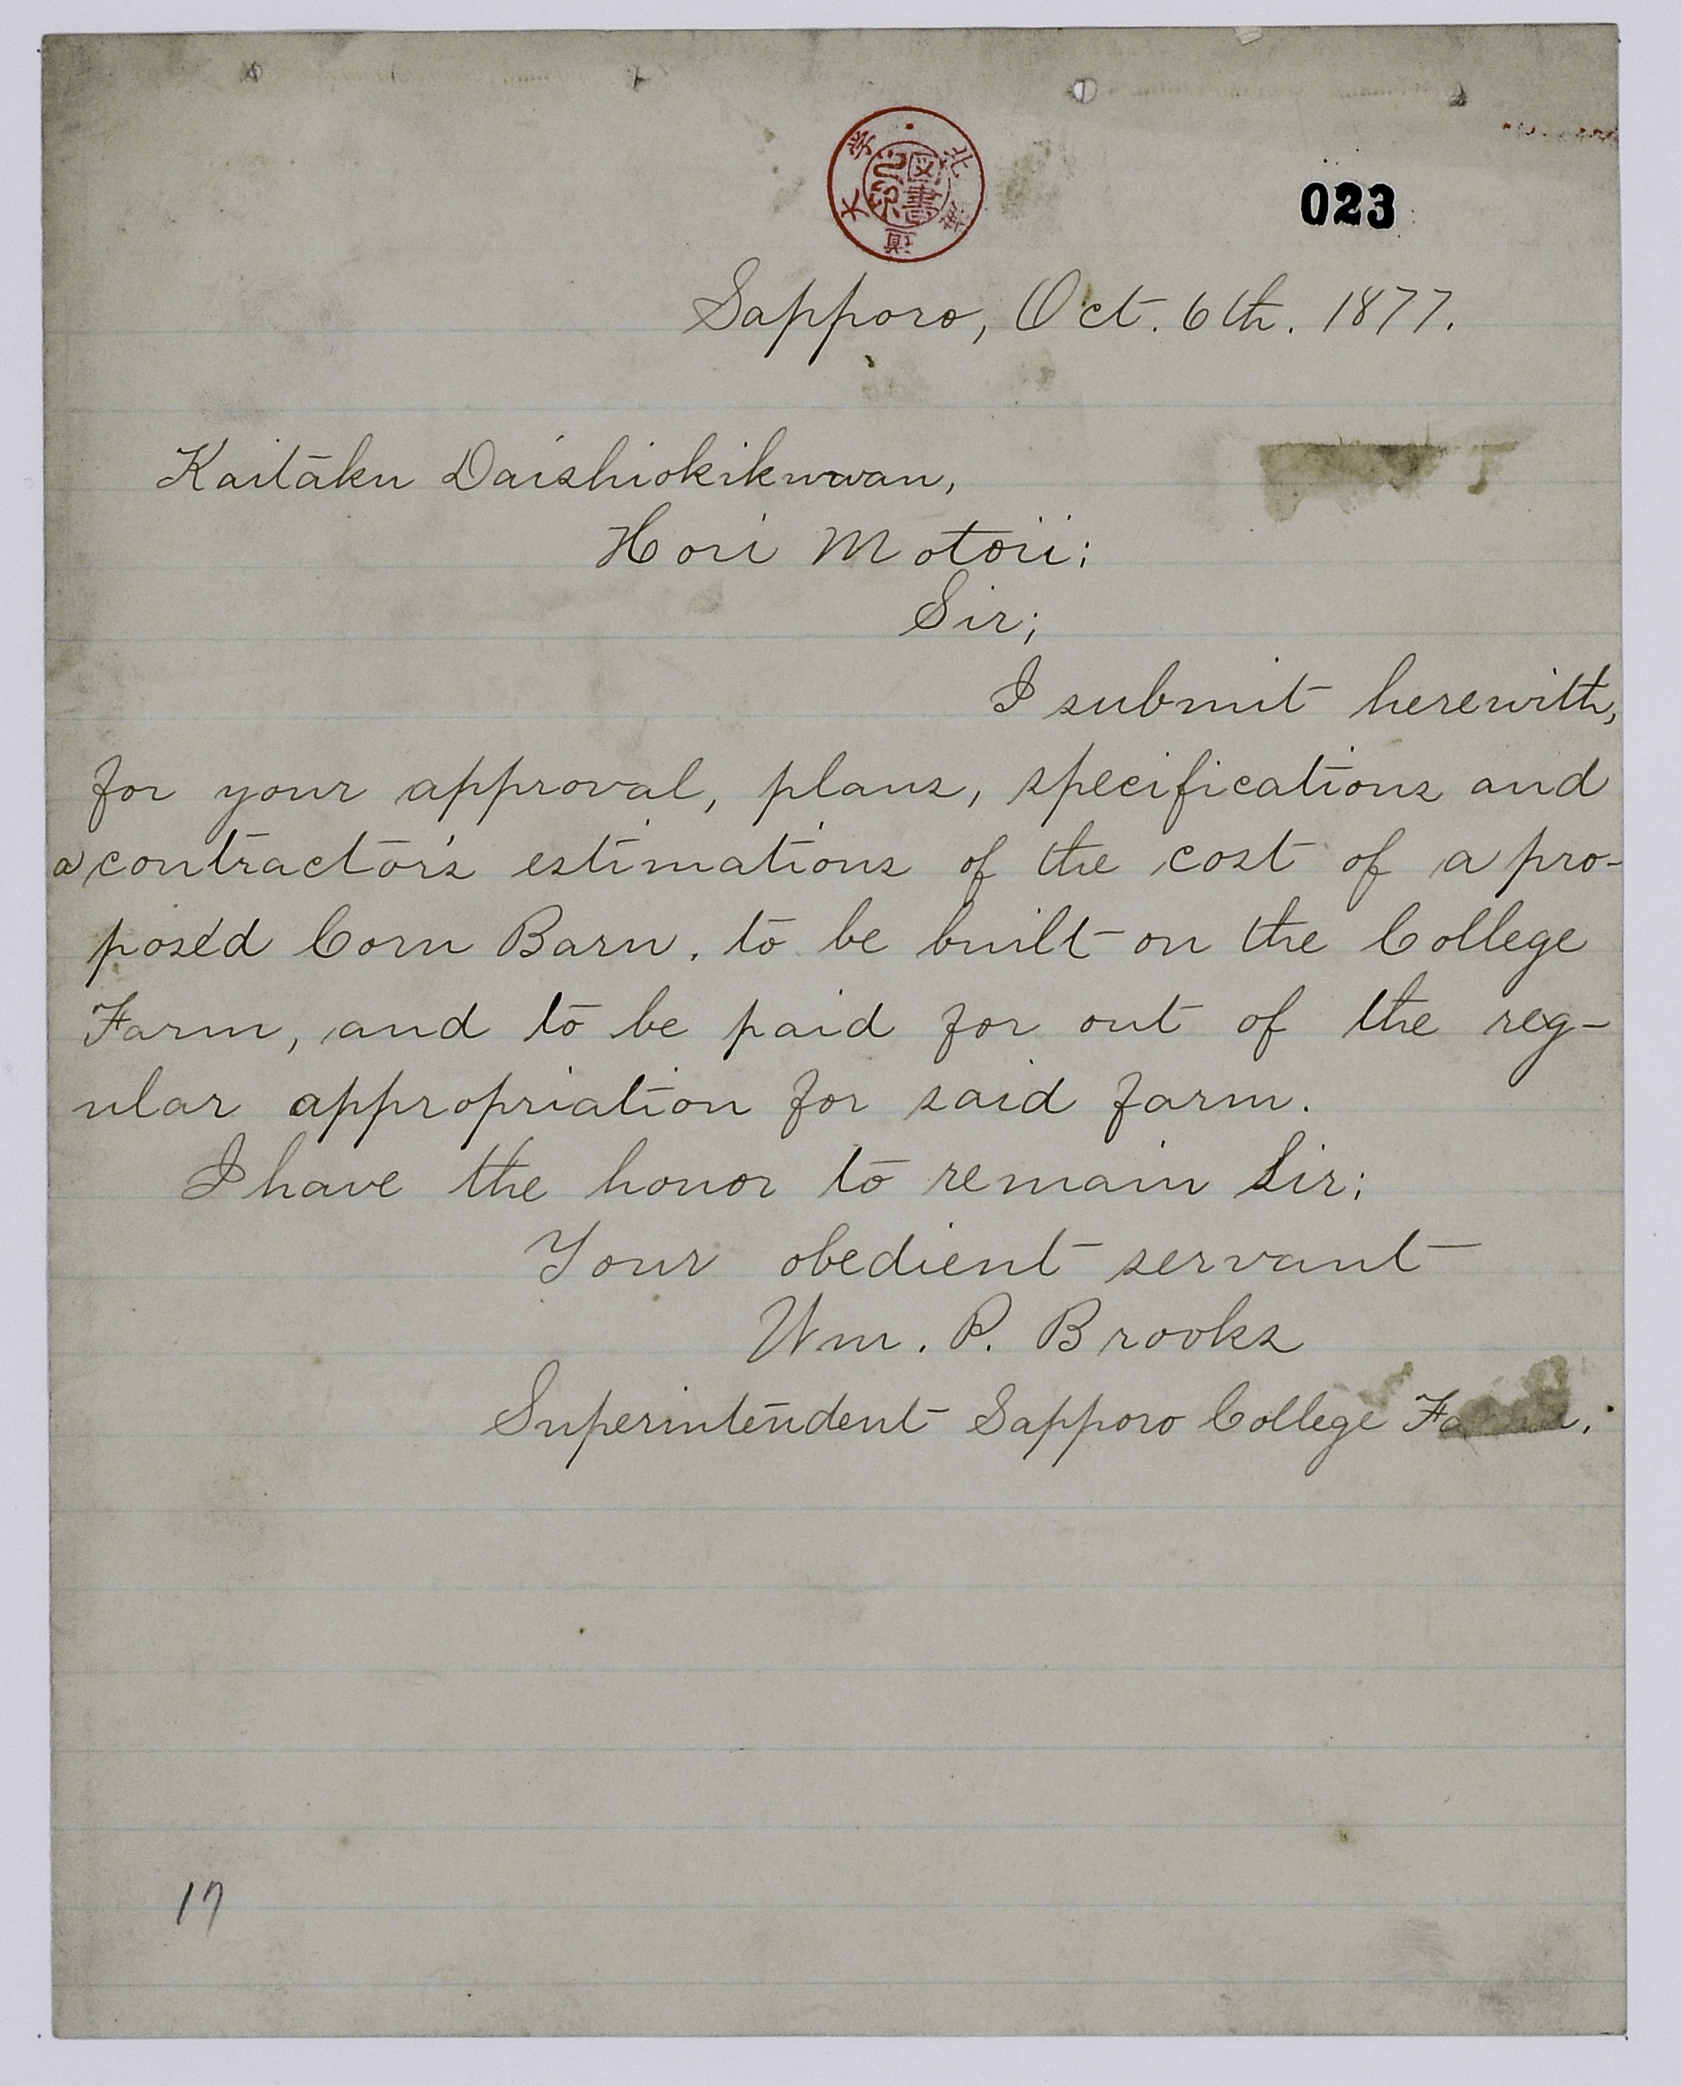 北海道大学
図書
023
Sapporo, Oct. 6th. 1877.
Kaitaku Daishiokikwan,
Hori Motoii;
Sir;
I submit herewith,
for your approval, plans, specifications and
a contractor's estimations of the cost of a pro-
posed Corn Barn, to be built on the College
Farm, and to be paid for out of the reg-
ular appropriation for said farm.
I have the honor to remain Sir;
Your obedient servant
Wm. P. Brooks
Superintendent Sapporo College Farm.
17